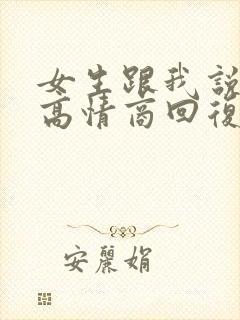 女生跟我說
高情商回復
安麗娟